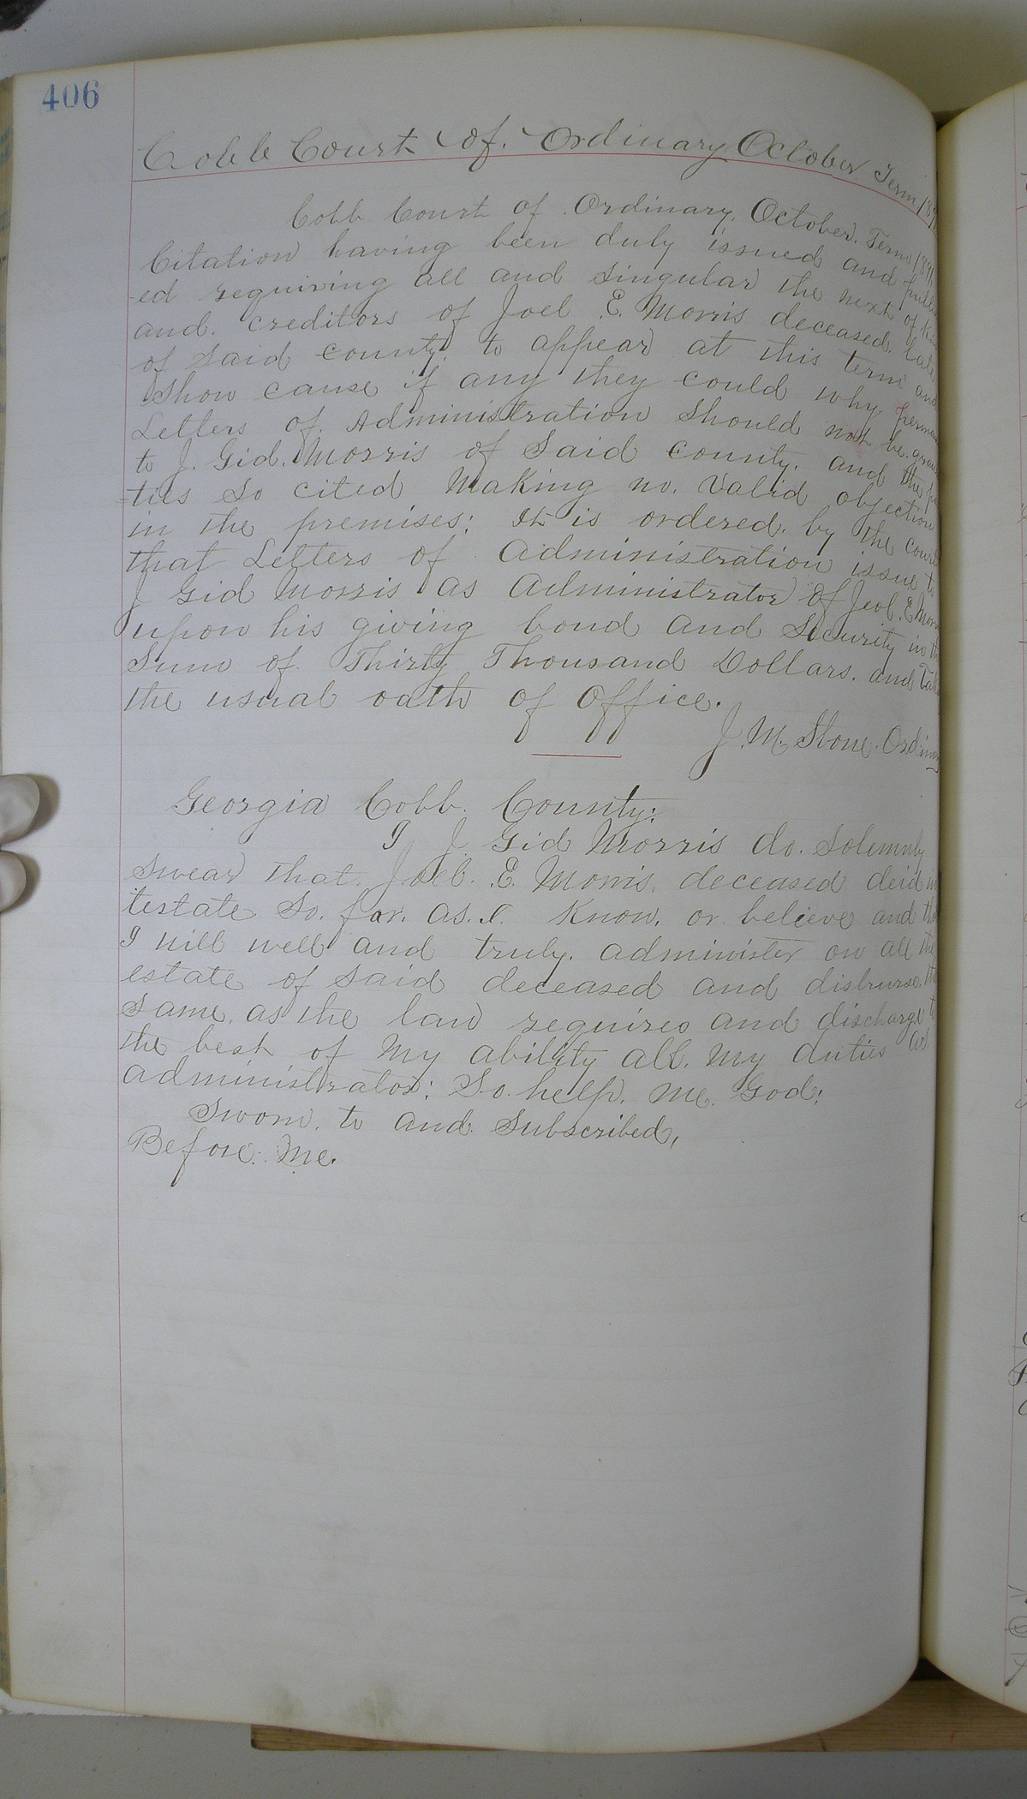 406
Cobb Court of. Ordinary October Term 189
Cobb Court of Ordinary, October. Term 1891
Citation having been duly issued and publish
-ed requiring all and singular the next of kin
and. creditors of Joel E. Morris deceased. late
of said county. to appear at this term and
Show cause if any they could why. perman
Letters of. Administration should not be. gran
to J. Gid. Morris of Said county. and the par
=ties so cited Making no. Valid objection
in the premises; It is ordered. by the court
that Letters of Administration issue to
J Gid Morris as Administrator of Joel. E. Morris
upon his giving bond and Security in the
Sum of Thirty Thousand Dollars. and Tak
the usual oath of office.
J. M. Stone. Ordinary
Georgia Cobb. County.
I J Gid Morris do. Solemnly
swear that. Joel. E. Morris. deceased deid in
testate So. far. as. I. Know. or believe and tha
I will well and truly. administer on all the
estate of said deceased and disburse. the
Same. as the law requires and discharge to
the best of My ability all. My duties as
administrator: So. help. me. God:
Sworn. to and Subscribed,
Before Me.